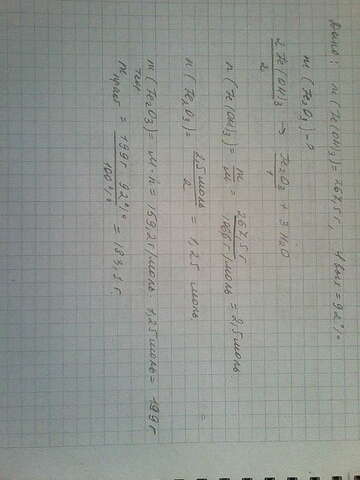 Дано: m(Fe(OH)3) = 267,5 г, η вых = 92%
m(Fe2O3) - ?
2Fe(OH)3 → Fe2O3 + 3H2O
2 1
n(Fe(OH)3) = m/M = 267,5 г / 107 г/моль = 2,5 моль.
n(Fe2O3) = 2,5 моль / 2 = 1,25 моль
m(Fe2O3) = M·n = 159,2 г/моль · 1,25 моль = 199 г
теор
m практ = 199 г · 92% / 100% = 183,1 г.